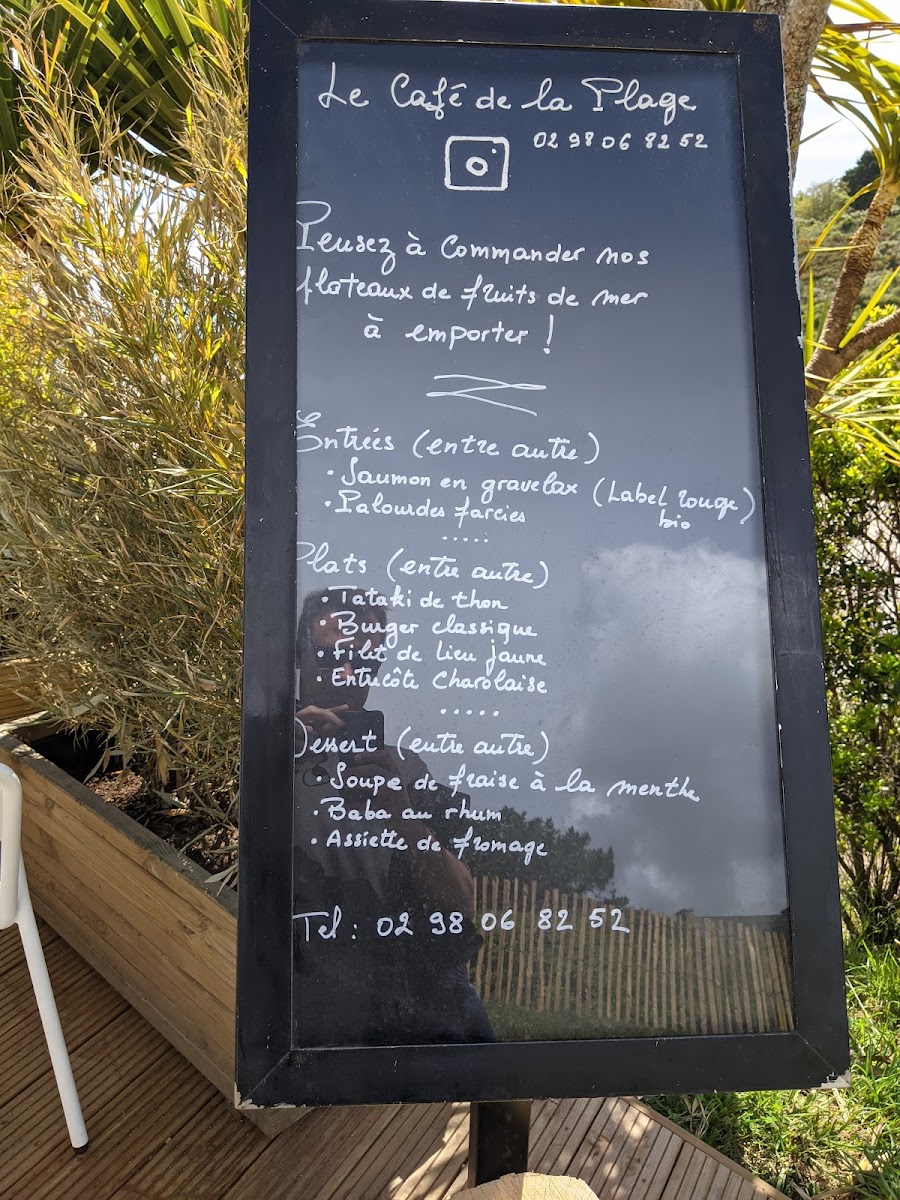 Le Café de la Plage
02 98 06 82 52
Pensez à Commander nos
plateaux de fruits de mer
à emporter !
Entrées (entre autre)
• Saumon en gravelax (Label rouge)
bio
• Palourdes farcies
.....
Plats (entre autre)
• Tataki de thon
• Burger classique
• Filet de Lieu jaune
• Entrecôte Charolaise
.....
Dessert (entre autre)
• Soupe de fraise à la menthe
• Baba au rhum
• Assiette de fromage
Tel : 02 98 06 82 52